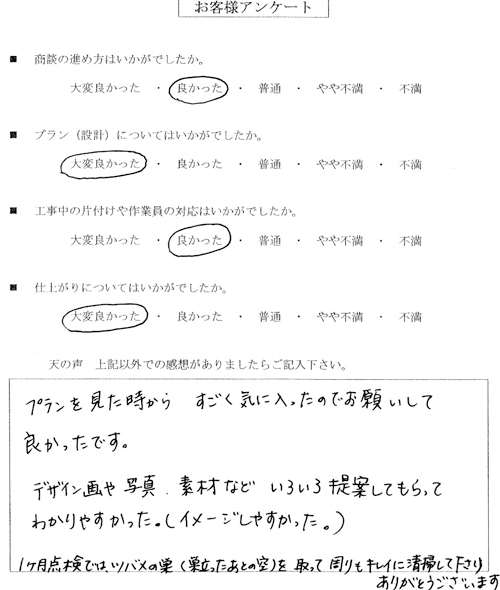 お客様アンケート
■ 商談の進め方はいかがでしたか。
大変良かった ・ 良かった ・ 普通 ・ やや不満 ・ 不満
■ プラン（設計）についてはいかがでしたか。
大変良かった ・ 良かった ・ 普通 ・ やや不満 ・ 不満
■ 工事中の片付けや作業員の対応はいかがでしたか。
大変良かった ・ 良かった ・ 普通 ・ やや不満 ・ 不満
■ 仕上がりについてはいかがでしたか。
大変良かった ・ 良かった ・ 普通 ・ やや不満 ・ 不満
天の声 上記以外での感想がありましたらご記入下さい。
プランを見た時から すごく気に入ったのでお願いして
良かったです。
デザイン画や写真、素材など いろいろ提案してもらって
わかりやすかった。（イメージしやすかった。）
1ヶ月点検では、ツバメの巣（巣立ったあとの空）を 取って 周りもキレイに清掃して下さり
ありがとうございます